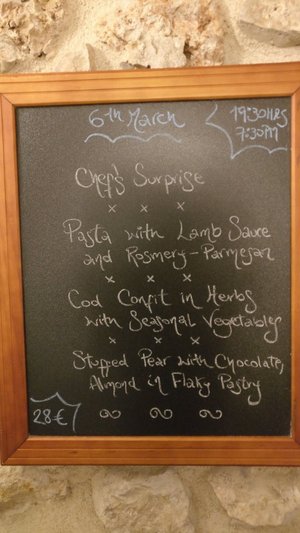 6th March
19:30HRS
7:30PM
Chef's Surprise
x x x
Pasta with Lamb Sauce
and Rosmery-Parmesan
x x x
Cod Confit in Herbs
with Seasonal Vegetables
x x x
Stuffed Pear with Chocolate,
Almond in Flaky Pastry
28€